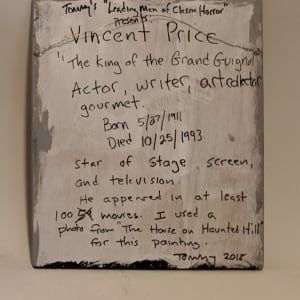 Tommy's "Leading Men of Classic Horror"
Presents:
Vincent Price
"The King of the Grand Guignol"
Actor, writer, art collector
gourmet.
Born 5/27/1911
Died 10/25/1993
Star of stage, screen,
and television.
He appeared in at least
100 movies. I used a
photo from "The House on Haunted Hill"
for this painting.
Tommy 2015